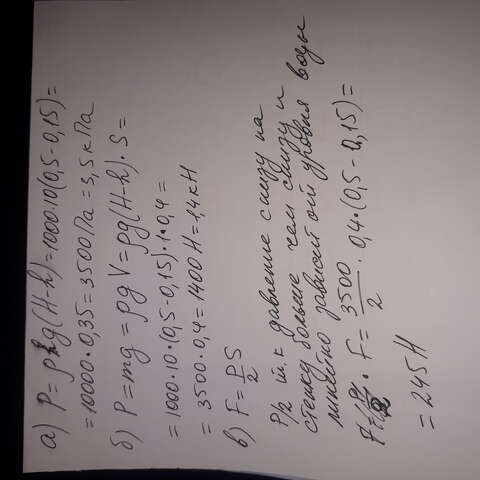 а) P = ρg(H-h) = 1000·10(0,5-0,15) =
= 10000·0,35 = 3500 Па = 3,5 кПа
б) P = mg = ρgV = ρg(H-h)·S =
= 1000·10·(0,5-0,15)·1·0,4 =
= 3500·0,4 = 1400 Н = 1,4 кН
в) F = P/2 S
P/2 т.к давление снизу на
стенку больше чем снизу и
линейно зависит от уровня воды
F = 3500/2 · 0,4·(0,5-0,15) =
= 245 Н